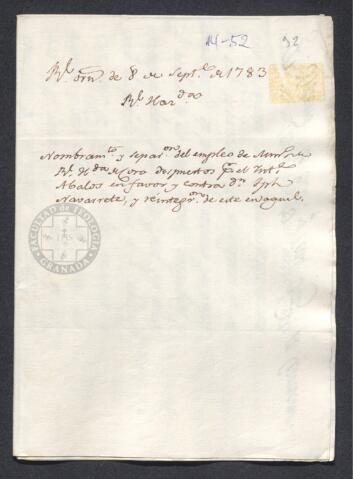 14-52 92
Rl. orn. de 8 de Sept.e de 1783
Rl. Hazda.
Nombramto. y separon. del empleo de Minro. de
Rl. Hda. de Coro dispuestos pr. el Intte.
Abalos en favor y contra dn. Jph
Navarrete, y reintegron. de este en aquel.
FACULTAD DE TEOLOGIA
GRANADA